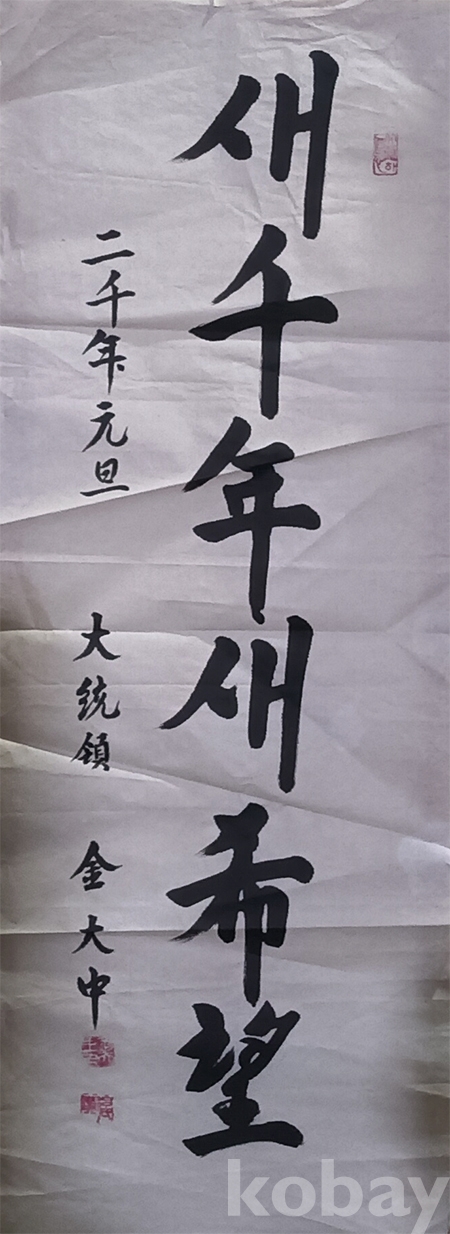 새千年새希望
二千年元旦 大統領 金大中
kobay